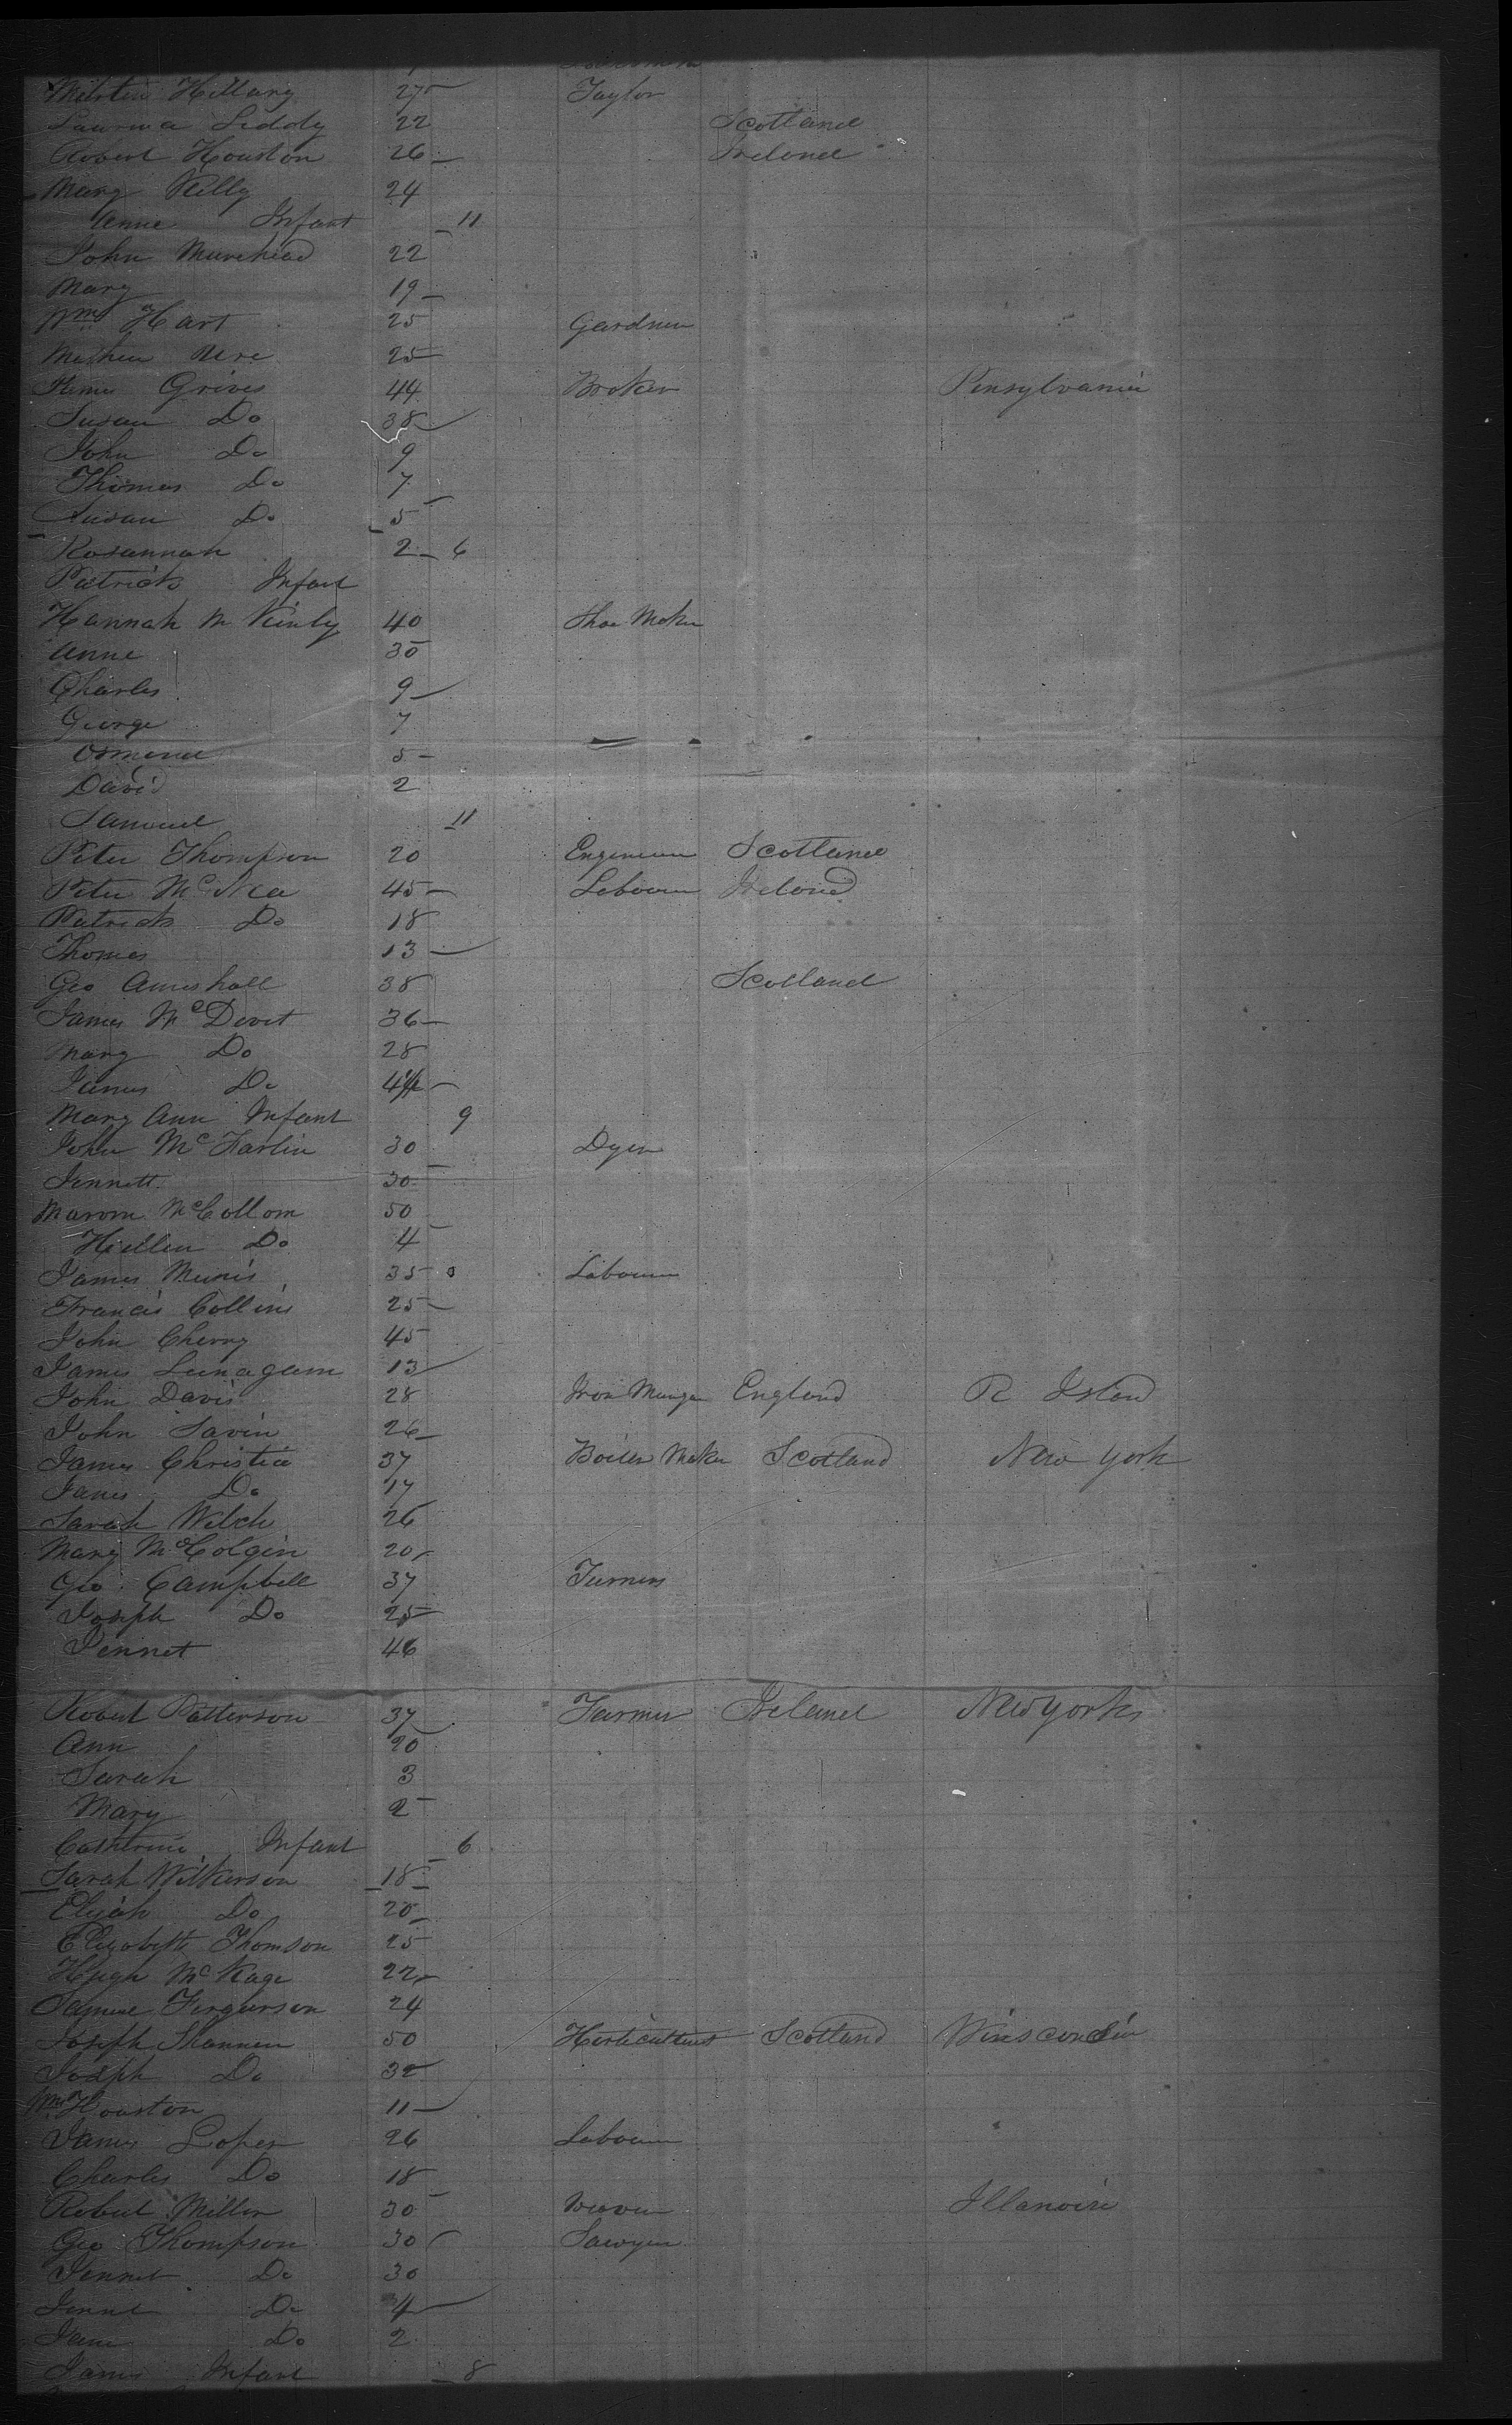 Hillary 27 Taylor
Liddly 22 Scotland
Robert Houston 26 Ireland
Mary Killy 24
Anne Infant 11
John Murehead 22
Mary 19
Wm Hart 25 Gardner
Mathew Ure 25
James Grives 44 Broker Pensylvania
Susan Do 38
John Do 9
Thomas Do 7
Susan Do 5
Rosannah 2 6
Patrick Infant
Hannah Mc Kinly 40 Shoe Maker
Anne 30
Charles 9
George 7
5
David 2
Samuel 11
Peter Thompson 20 Engineer Scotland
Peter McNea 45 Labourer Ireland
Patrick Do 18
Thomas 13
Geo 38 Scotland
James McDevit 36
Mary Do 28
James Do 4
Mary Ann Infant 9
John McFarlin 30 Dyer
Jennett 30
McCollom 50
Hellen Do 4
James 35 Labourer
Francis Collins 25
John Cherry 45
James 13
John Davis 28 Iron Munger England R Island
John Savin 26
James Christie 37 Boiler Maker Scotland New York
Janes Do 17
Sarah Welch 26
Mary McColgin 20
Geo Campbell 37 Turners
Joseph Do 25
Jennet 46
Robert Patterson 37 Farmer Ireland New york
Ann 20
Sarah 3
Mary 2
Catherine Infant 6
Sarah Wilkerson 18
Elijah Do 20
Elizabeth Thomson 25
Hugh McKage 22
Samuel Fergurson 24
Joseph Shannon 50 Horticulturist Scotland Winsconsin
Joseph Do 32
Wm Houston 11
James Loper 26 Labourer
Charles Do 18
Robert Miller 30 Weaver Illanoire
Geo Thompson 30 Sawyer
Jennet Do 30
Jennet Do 4
Jane Do 2
James Infant 8